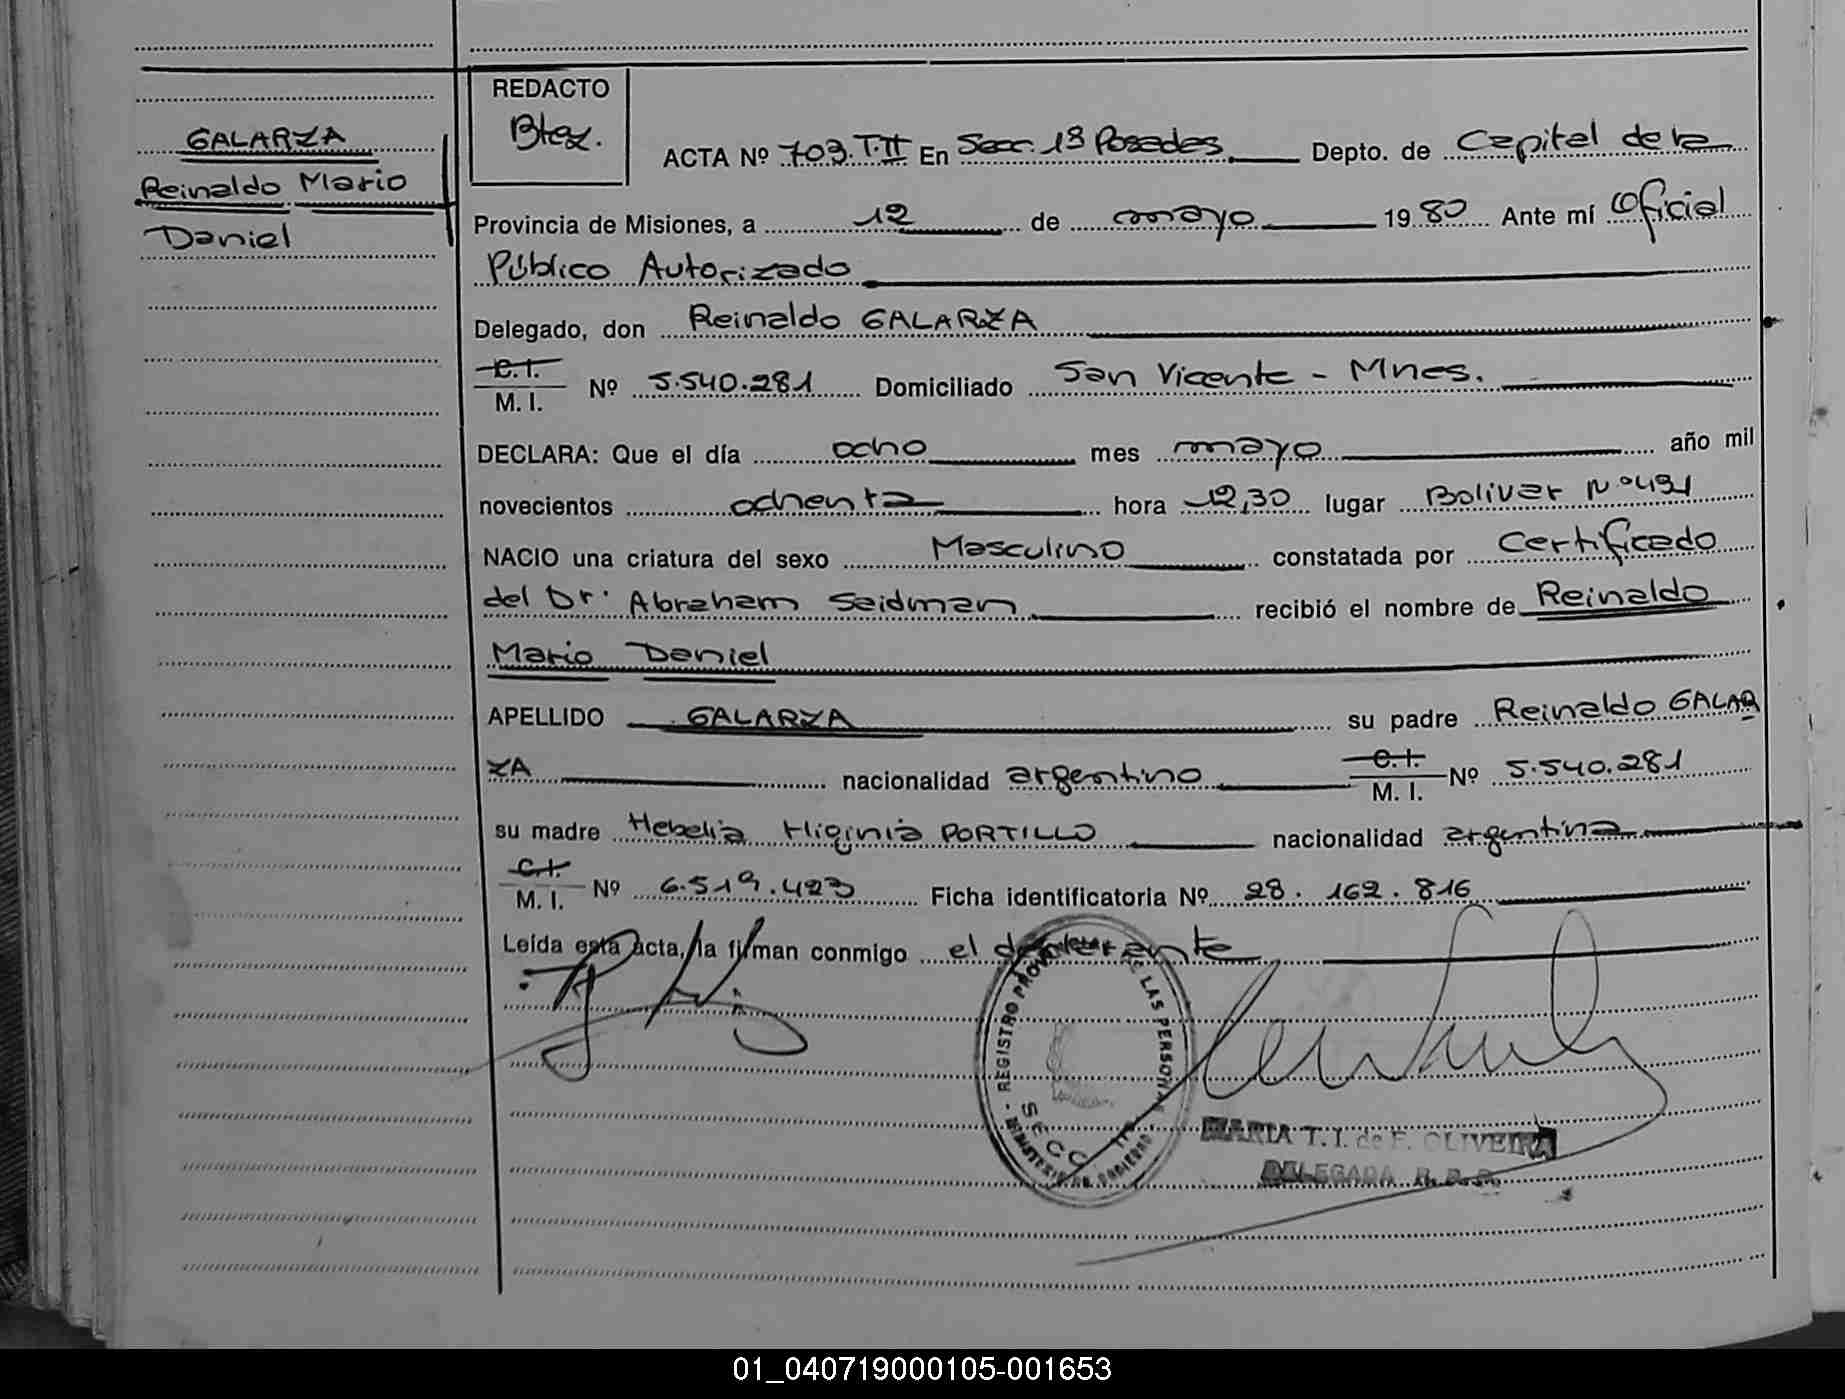 GALARZA
Reinaldo Mario
Daniel
REDACTO
Btez.
ACTA Nº 703.T.II En Secc. 1ª Posadas Depto. de Capital de la
Provincia de Misiones, a 12 de mayo 1980 Ante mí Oficial
Público Autorizado
Delegado, don Reinaldo GALARZA
C.I.
M. I. Nº 5.540.281 Domiciliado San Vicente - Mnes.
DECLARA: Que el día ocho mes mayo año mil
novecientos ochenta hora 12,30 lugar Bolivar Nº 491
NACIO una criatura del sexo Masculino constatada por Certificado
del Dr. Abraham Seidman recibió el nombre de Reinaldo
Mario Daniel
APELLIDO GALARZA su padre Reinaldo GALAR
ZA nacionalidad argentino C.I. M. I. Nº 5.540.281
su madre Hebelia Higinia PORTILLO nacionalidad argentina
C.I.
M. I. Nº 6.519.423 Ficha identificatoria Nº 28.162.816
Leída esta acta, la firman conmigo el declarante
REGISTRO PROV DE LAS PERSONAS
SECC
MINISTERIO DE GOBIERNO
MARIA T. I. de F. OLIVEIRA
DELEGADA R. P. P.
01_040719000105-001653